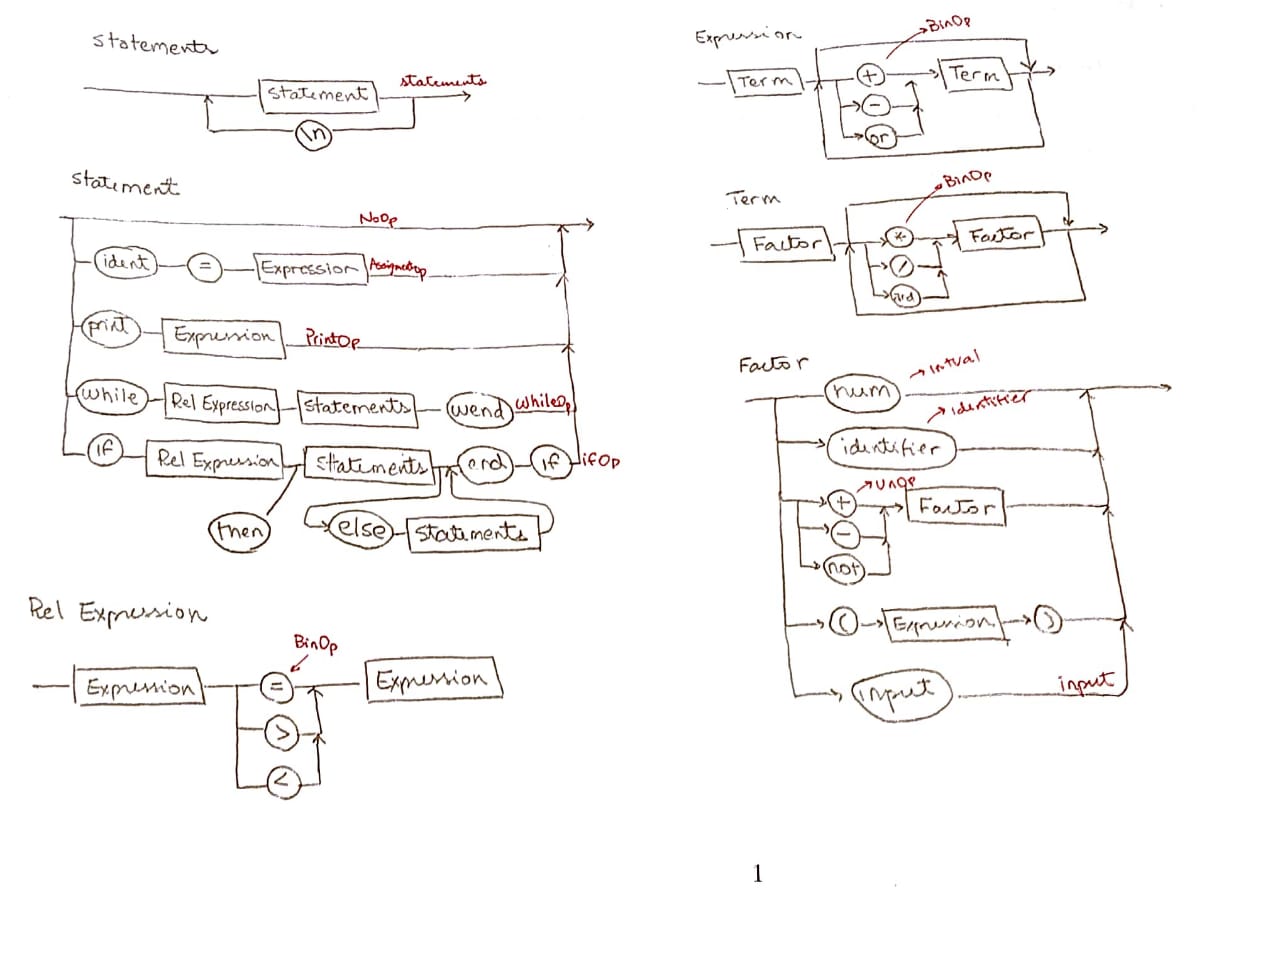 Statements
Statement statements
\n
Statement
NoOp
ident = Expression AssignmentOp
print Expression PrintOp
while Rel Expression Statements wend WhileOp
if Rel Expression Statements end if ifOp
then else Statements
Rel Expression
BinOp
Expression = Expression
>
<
Expression BinOp
Term + Term
-
or
Term BinOp
Factor * Factor
/
and
Factor
num intval
identifier identifier
UnOp
+ Factor
-
not
( Expression )
input input
1